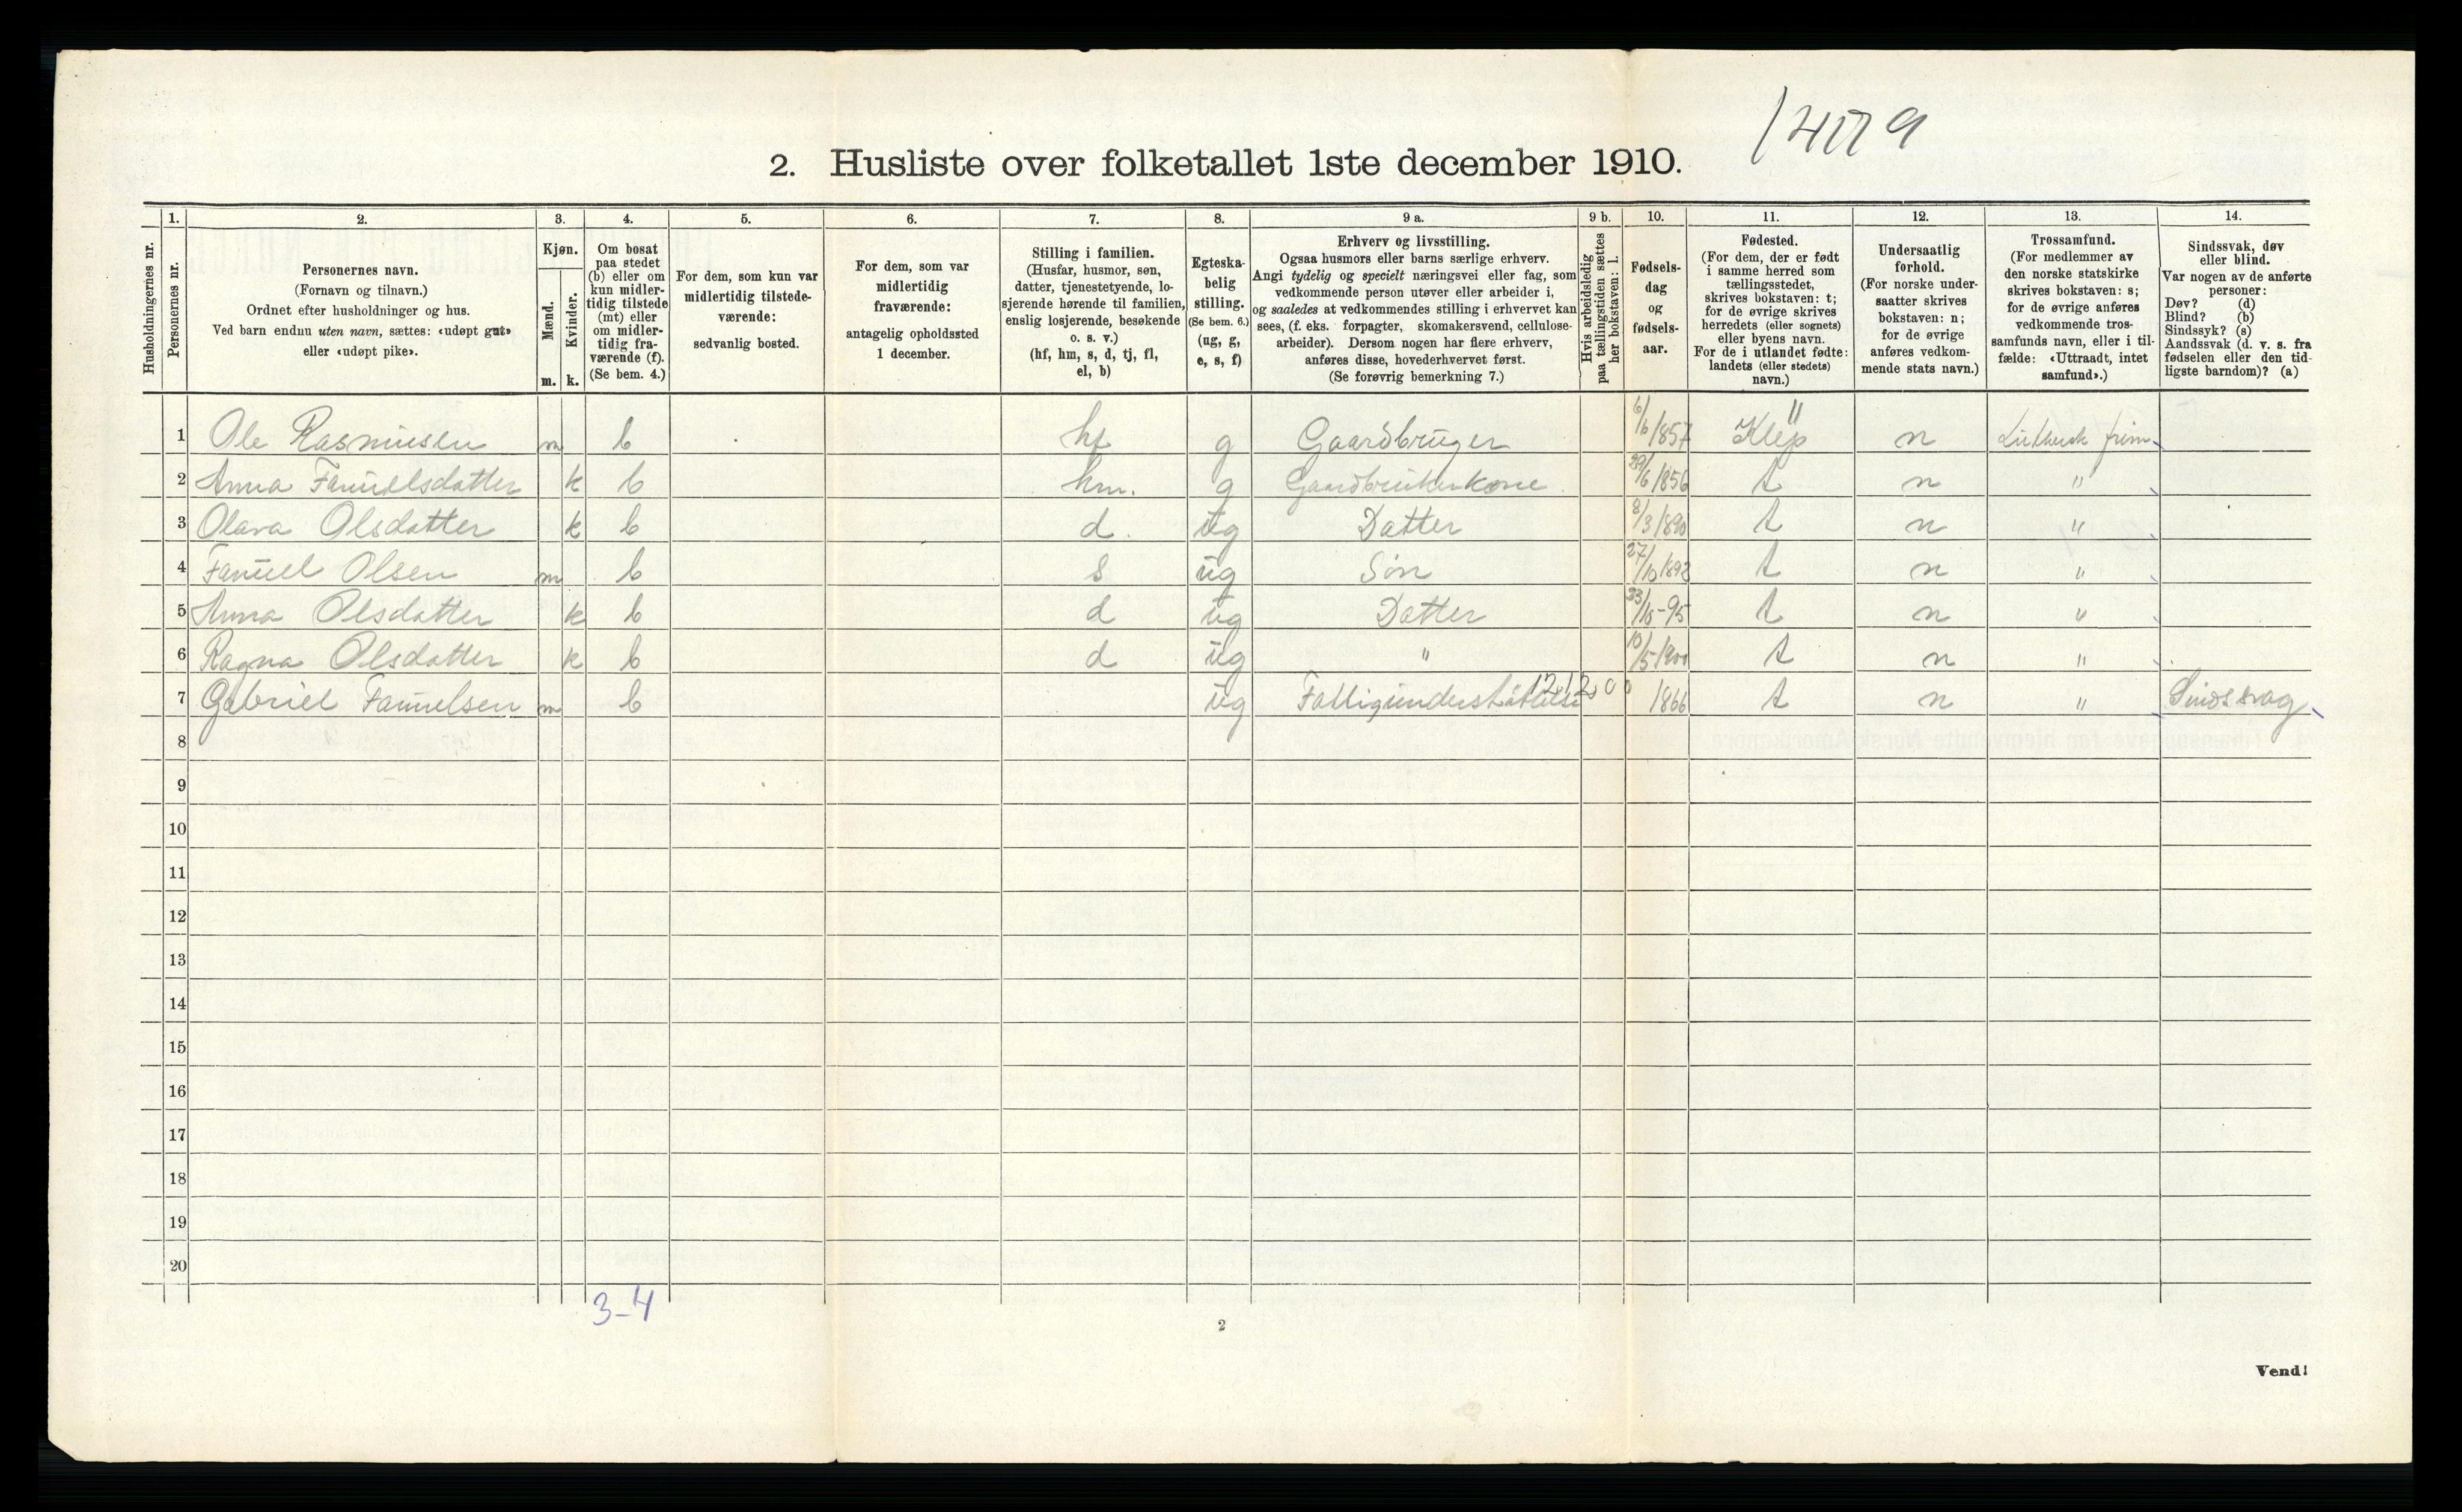 2. Husliste over folketallet 1ste december 1910.
Husholdningernes nr.
1. 2. 3. 4. 5. 6. 7. 8. 9 a. 9 b. 10. 11. 12. 13. 14.
Personernes nr.
Personernes navn.
(Fornavn og tilnavn.)
Ordnet efter husholdninger og hus.
Ved barn endnu uten navn, sættes: «udøpt gut»
eller «udøpt pike».
Kjøn.
Mænd.
Kvinder.
m. k.
Om bosat
paa stedet
(b) eller om
kun midler-
tidig tilstede
(mt) eller
om midler-
tidig fra-
værende (f).
(Se bem. 4.)
For dem, som kun var
midlertidig tilstede-
værende:
sedvanlig bosted.
For dem, som var
midlertidig
fraværende:
antagelig opholdssted
1 december.
Stilling i familien.
(Husfar, husmor, søn,
datter, tjenestetyende, lo-
sjerende hørende til familien,
enslig losjerende, besøkende
o. s. v.)
(hf, hm, s, d, tj, fl,
el, b)
Egteska-
belig
stilling.
(Se bem. 6.)
(ug, g,
e, s, f)
Erhverv og livsstilling.
Ogsaa husmors eller barns særlige erhverv.
Angi tydelig og specielt næringsvei eller fag, som
vedkommende person utøver eller arbeider i,
og saaledes at vedkommendes stilling i erhvervet kan
sees, (f. eks. forpagter, skomakersvend, cellulose-
arbeider). Dersom nogen har flere erhverv,
anføres disse, hovederhvervet først.
(Se forøvrig bemerkning 7.)
Hvis arbeidsledig
paa tællingstiden sættes
her bokstaven: l.
Fødsels-
dag
og
fødsels-
aar.
Fødested.
(For dem, der er født
i samme herred som
tællingsstedet,
skrives bokstaven: t;
for de øvrige skrives
herredets (eller sognets)
eller byens navn.
For de i utlandet fødte:
landets (eller stedets)
navn.)
Undersaatlig
forhold.
(For norske under-
saatter skrives
bokstaven: n;
for de øvrige
anføres vedkom-
mende stats navn.)
Trossamfund.
(For medlemmer av
den norske statskirke
skrives bokstaven: s;
for de øvrige anføres
vedkommende tros-
samfunds navn, eller i til-
fælde: «Uttraadt, intet
samfund».)
Sindssvak, døv
eller blind.
Var nogen av de anførte
personer:
Døv? (d)
Blind? (b)
Sindssyk? (s)
Aandssvak (d. v. s. fra
fødselen eller den tid-
ligste barndom)? (a)
1 Ole Rasmusen m b hf g Gaardbruger 6/6 1857 Klep " n Luthersk
2 Anna Fanuelsdatter k b hm. g Gaardbrukerkone 29/6 1856 t n "
3 Olava Olsdatter k b d. ug Datter 8/3 1890 t n "
4 Fanuel Olsen m b s ug Søn 27/10 1892 t n "
5 Anna Olsdatter k b d ug Datter 23/10-95 t n "
6 Ragna Olsdatter k b d ug " 10/5 1900 t n "
7 Gabriel Fanuelsen m b ug Fattigunderstøttelse 1866 t n " Sindssvag
8
9
10
11
12
13
14
15
16
17
18
19
20
3-4
2
Vend!